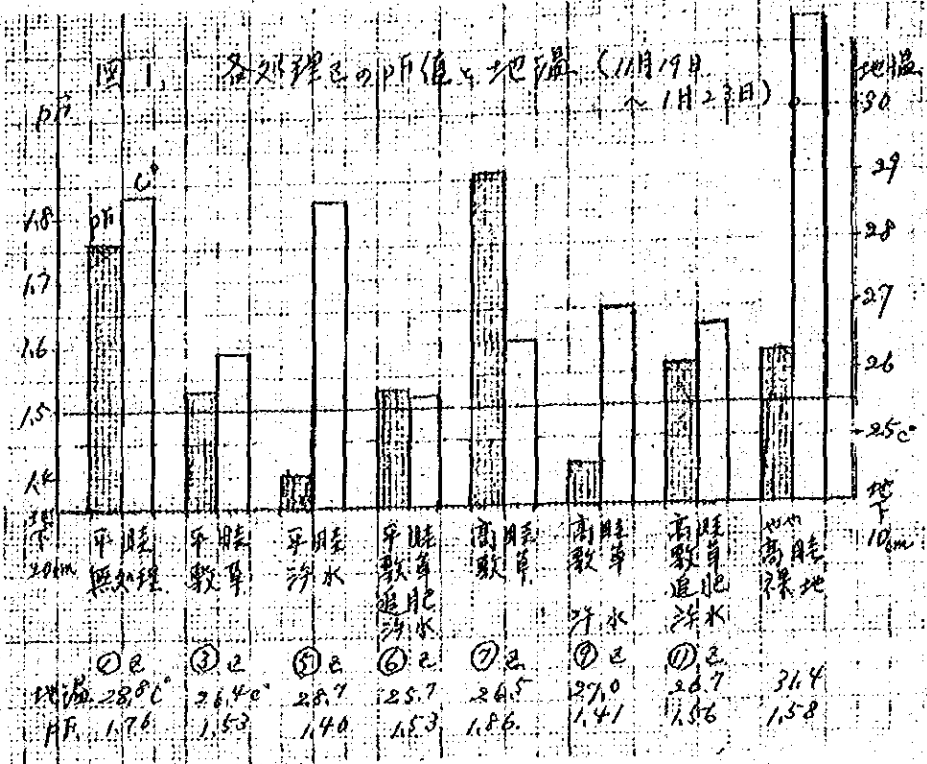 図1. 各処理区のpF値と地温 (11月19日
~1月23日)
pF
地温
30
29
28
27
26
25c°
1.8
1.7
1.6
1.5
1.4
pF
C°
地下
20cm
地下
10cm
平畦 無処理
平畦 敷草
平畦 汴水
平畦 敷草 追肥 汴水
高畦 敷草
高畦 敷草 汴水
高畦 敷草 追肥 汴水
やや高畦 裸地
②区 ③区 ⑤区 ⑥区 ⑦区 ⑨区 ⑪区
地温 28.8c° 26.4c° 28.7 25.7 26.5 27.0 26.7 31.4
pF. 1.76 1.53 1.40 1.53 1.86 1.41 1.56 1.58